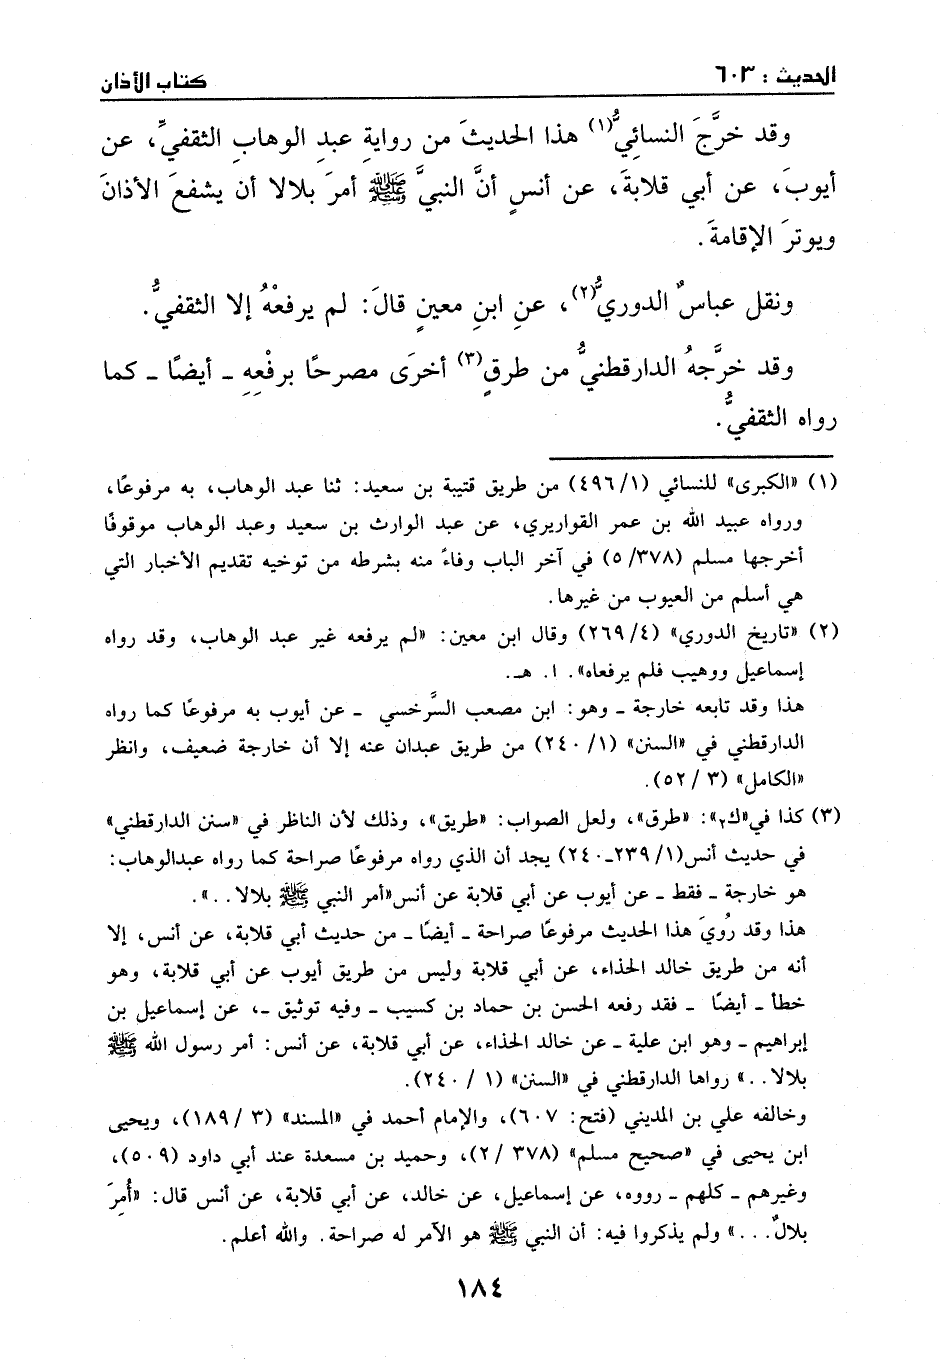 الحديث : ٦٠٣
كتاب الأذان
وقد خرَّجَ النسائِيُّ(١) هذا الحديثَ من روايةِ عبدِ الوهابِ الثقفيِّ، عن
أيوبَ، عن أبي قلابةَ، عن أنسٍ أنَّ النبيَّ ﷺ أمرَ بلالا أن يشفعَ الأذانَ
ويوترَ الإقامةَ.
ونقل عباسٌ الدوريُّ(٢)، عنِ ابنِ معينٍ قالَ: لم يرفعْهُ إلا الثقفيُّ.
وقد خرَّجهُ الدارقطنيُّ من طرقٍ(٣) أخرَى مصرحًا برفْعِهِ ـ أيضًا ـ كما
رواه الثقفيُّ.
(١) «الكبرى» للنسائي (١/ ٤٩٦) من طريق قتيبة بن سعيد: ثنا عبد الوهاب، به مرفوعًا،
ورواه عبيد الله بن عمر القواريري، عن عبد الوارث بن سعيد وعبد الوهاب موقوفًا
أخرجها مسلم (٣٧٨/ ٥) في آخر الباب وفاءً منه بشرطه من توخيه تقديم الأخبار التي
هي أسلم من العيوب من غيرها.
(٢) «تاريخ الدوري» (٤/ ٢٦٩) وقال ابن معين: «لم يرفعه غير عبد الوهاب، وقد رواه
إسماعيل ووهيب فلم يرفعاه». ا. هـ.
هذا وقد تابعه خارجة ـ وهو: ابن مصعب السَّرخسي ـ عن أيوب به مرفوعًا كما رواه
الدارقطني في «السنن» (١/ ٢٤٠) من طريق عبدان عنه إلا أن خارجة ضعيف، وانظر
«الكامل» (٣ / ٥٢).
(٣) كذا في«ك٢»: «طرق»، ولعل الصواب: «طريق»، وذلك لأن الناظر في «سنن الدارقطني»
في حديث أنس(١/ ٢٣٩ـ٢٤٠) يجد أن الذي رواه مرفوعًا صراحة كما رواه عبدالوهاب:
هو خارجة ـ فقط ـ عن أيوب عن أبي قلابة عن أنس«أمر النبي ﷺ بلالا..».
هذا وقد رُويَ هذا الحديث مرفوعًا صراحة ـ أيضًا ـ من حديث أبي قلابة، عن أنس، إلا
أنه من طريق خالد الحذاء، عن أبي قلابة وليس من طريق أيوب عن أبي قلابة، وهو
خطأ ـ أيضًا ـ فقد رفعه الحسن بن حماد بن كسيب ـ وفيه توثيق ـ، عن إسماعيل بن
إبراهيم ـ وهو ابن علية ـ عن خالد الحذاء، عن أبي قلابة، عن أنس: أمر رسول الله ﷺ
بلالا..» رواها الدارقطني في «السنن» (١ / ٢٤٠).
وخالفه علي بن المديني (فتح: ٦٠٧)، والإمام أحمد في «المسند» (٣ / ١٨٩)، ويحيى
ابن يحيى في «صحيح مسلم» (٣٧٨ / ٢)، وحميد بن مسعدة عند أبي داود (٥٠٩)،
وغيرهم ـ كلهم ـ رووه، عن إسماعيل، عن خالد، عن أبي قلابة، عن أنس قال: «أُمِرَ
بلالٌ...» ولم يذكروا فيه: أن النبي ﷺ هو الآمر له صراحة. والله أعلم.
١٨٤